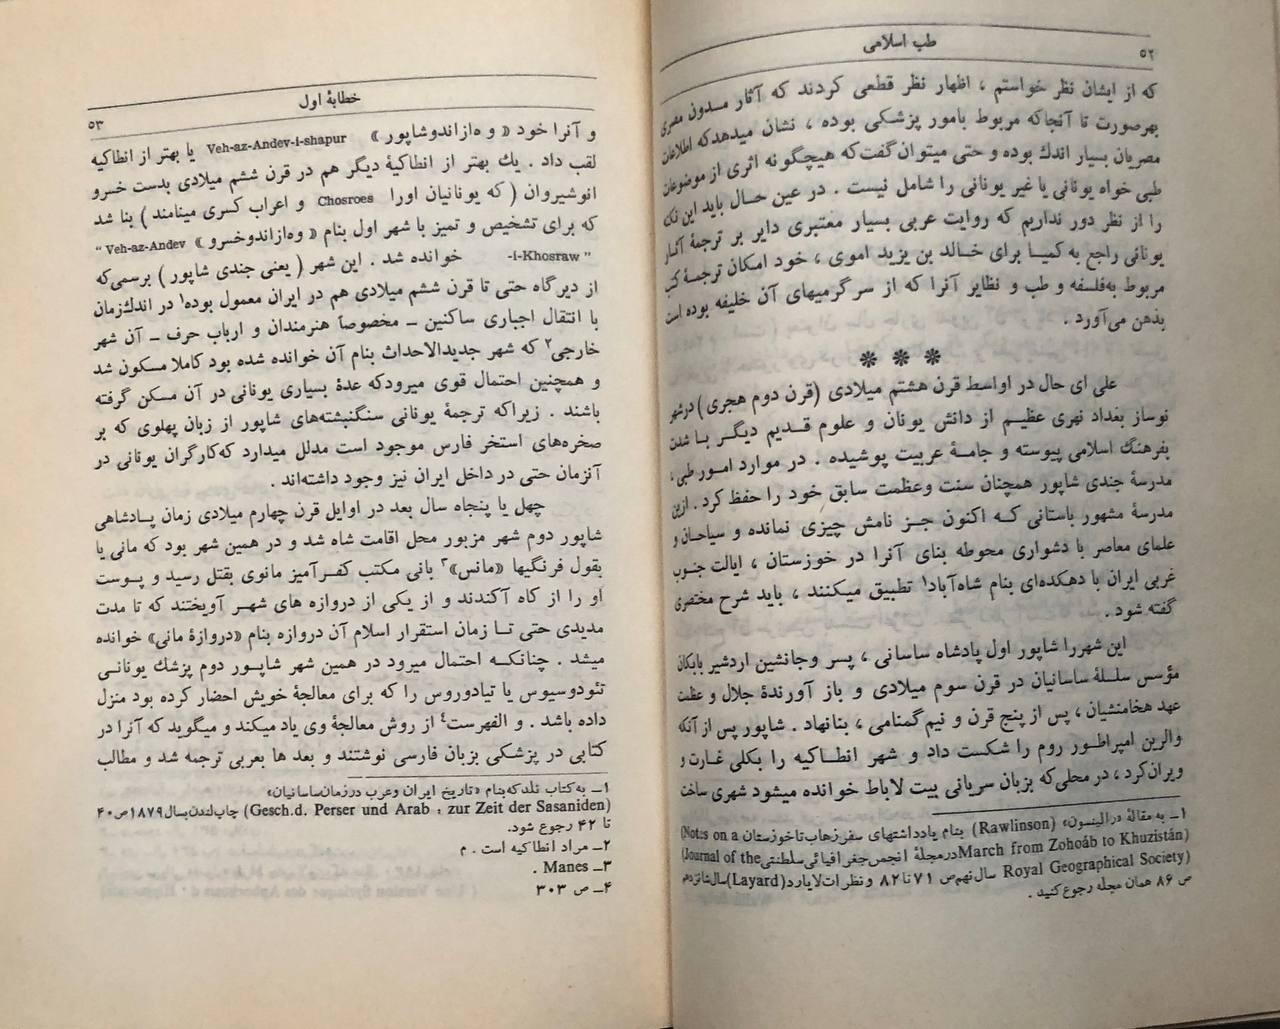 ۵۲
طب اسلامی
که از ایشان نظر خواستم ، اظهار نظر قطعی کردند که آثار مدون مصری
بهرصورت تا آنجاکه مربوط بامور پزشکی بوده ، نشان میدهدکه اطلاعات
مصریان بسیار اندك بوده و حتی میتوان گفت‌که هیچگونه اثری از موضوعات
طبی خواه یونانی یا غیر یونانی را شامل نیست . در عین حال باید این نکته
را از نظر دور نداریم که روایت عربی بسیار معتبری دایر بر ترجمهٔ آثار
یونانی راجع به کمیا برای خالد بن یزید اموی ، خود امکان ترجمهٔ کتب
مربوط به‌فلسفه و طب و نظایر آنرا که از سرگرمیهای آن خلیفه بوده است
بذهن می‌آورد .
* * *
علی ای حال در اواسط قرن هشتم میلادی (قرن دوم هجری) درشهر
نوساز بغداد نهری عظیم از دانش یونان و علوم قدیم دیگر با شدت
بفرهنگ اسلامی پیوسته و جامهٔ عربیت پوشیده . در موارد امور طبی ،
مدرسهٔ جندی شاپور همچنان سنت وعظمت سابق خود را حفظ کرد . ازین
مدرسهٔ مشهور باستانی که اکنون جز نامش چیزی نمانده و سیاحان و
علمای معاصر با دشواری محوطه بنای آنرا در خوزستان ، ایالت جنوب
غربی ایران با دهکده‌ای بنام شاه‌آباد۱ تطبیق میکنند ، باید شرح مختصری
گفته شود .
این شهررا شاپور اول پادشاه ساسانی ، پسر وجانشین اردشیر بابکان
مؤسس سلسلهٔ ساسانیان در قرن سوم میلادی و باز آورندهٔ جلال و عظمت
عهد هخامنشیان ، پس از پنج قرن و نیم گمنامی ، بنانهاد . شاپور پس از آنکه
والرین امپراطور روم را شکست داد و شهر انطاکیه را بکلی غارت و
ویران‌کرد ، در محلی‌که بزبان سریانی بیت لاباط خوانده میشود شهری ساخت
۱ـ به مقالهٔ «رالینسون» (Rawlinson) بنام یادداشتهای سفر زهاب تاخوزستان (Notes on a
March from Zohoáb to Khuzistán) درمجلهٔ انجمن جغرافیائی سلطنتی (Journal of the
Royal Geographical Society) سال نهم‌ص ۷۱ تا ۸۲ و نظرات لایارد (Layard) سال شانزدهم
ص ۸۶ همان مجله رجوع کنید .
خطابهٔ اول
۵۳
و آنرا خود « وه‌ازاندوشاپور » Veh-az-Andev-i-shapur یا بهتر از انطاکیه
لقب داد . یك بهتر از انطاکیهٔ دیگر هم در قرن ششم میلادی بدست خسرو
انوشیروان ( که یونانیان اورا Chosroes و اعراب کسری مینامند ) بنا شد
که برای تشخیص و تمیز با شهر اول بنام « وه‌ازاندوخسرو » Veh-az-Andev "
" -i-Khosraw خوانده شد . این شهر ( یعنی جندی شاپور ) برسمی‌که
از دیرگاه حتی تا قرن ششم میلادی هم در ایران معمول بوده۱ در اندك‌زمان
با انتقال اجباری ساکنین ـ مخصوصاً هنرمندان و ارباب حرف ـ آن شهر
خارجی۲ که شهر جدیدالاحداث بنام آن خوانده شده بود کاملا مسکون شد
و همچنین احتمال قوی میرودکه عدهٔ بسیاری یونانی در آن مسکن گرفته
باشند . زیراکه ترجمهٔ یونانی سنگنبشته‌های شاپور از زبان پهلوی که بر
صخره‌های استخر فارس موجود است مدلل میدارد که‌کارگران یونانی در
آنزمان حتی در داخل ایران نیز وجود داشته‌اند .
چهل یا پنجاه سال بعد در اوایل قرن چهارم میلادی زمان پادشاهی
شاپور دوم شهر مزبور محل اقامت شاه شد و در همین شهر بود که مانی یا
بقول فرنگیها «مانس»۳ بانی مکتب کفرآمیز مانوی بقتل رسید و پوست
او را از کاه آکندند و از یکی از دروازه های شهر آویختند که تا مدت
مدیدی حتی تا زمان استقرار اسلام آن دروازه بنام «دروازهٔ مانی» خوانده
میشد . چنانکه احتمال میرود در همین شهر شاپور دوم پزشك یونانی
تئودوسیوس یا تیادوروس را که برای معالجهٔ خویش احضار کرده بود منزل
داده باشد . و الفهرست۴ از روش معالجهٔ وی یاد میکند و میگوید که آنرا در
کتابی در پزشکی بزبان فارسی نوشتند و بعد ها بعربی ترجمه شد و مطالب
۱ـ به‌کتاب نلدکه‌بنام «تاریخ ایران وعرب درزمان‌ساسانیان»
(Gesch.d. Perser und Arab , zur Zeit der Sasaniden) چاپ‌لندن‌بسال۱۸۷۹ص۴۰
تا ۴۲ رجوع شود.
۲ـ مراد انطاکیه است . م
۳ـ Manes .
۴ـ ص ۳۰۳